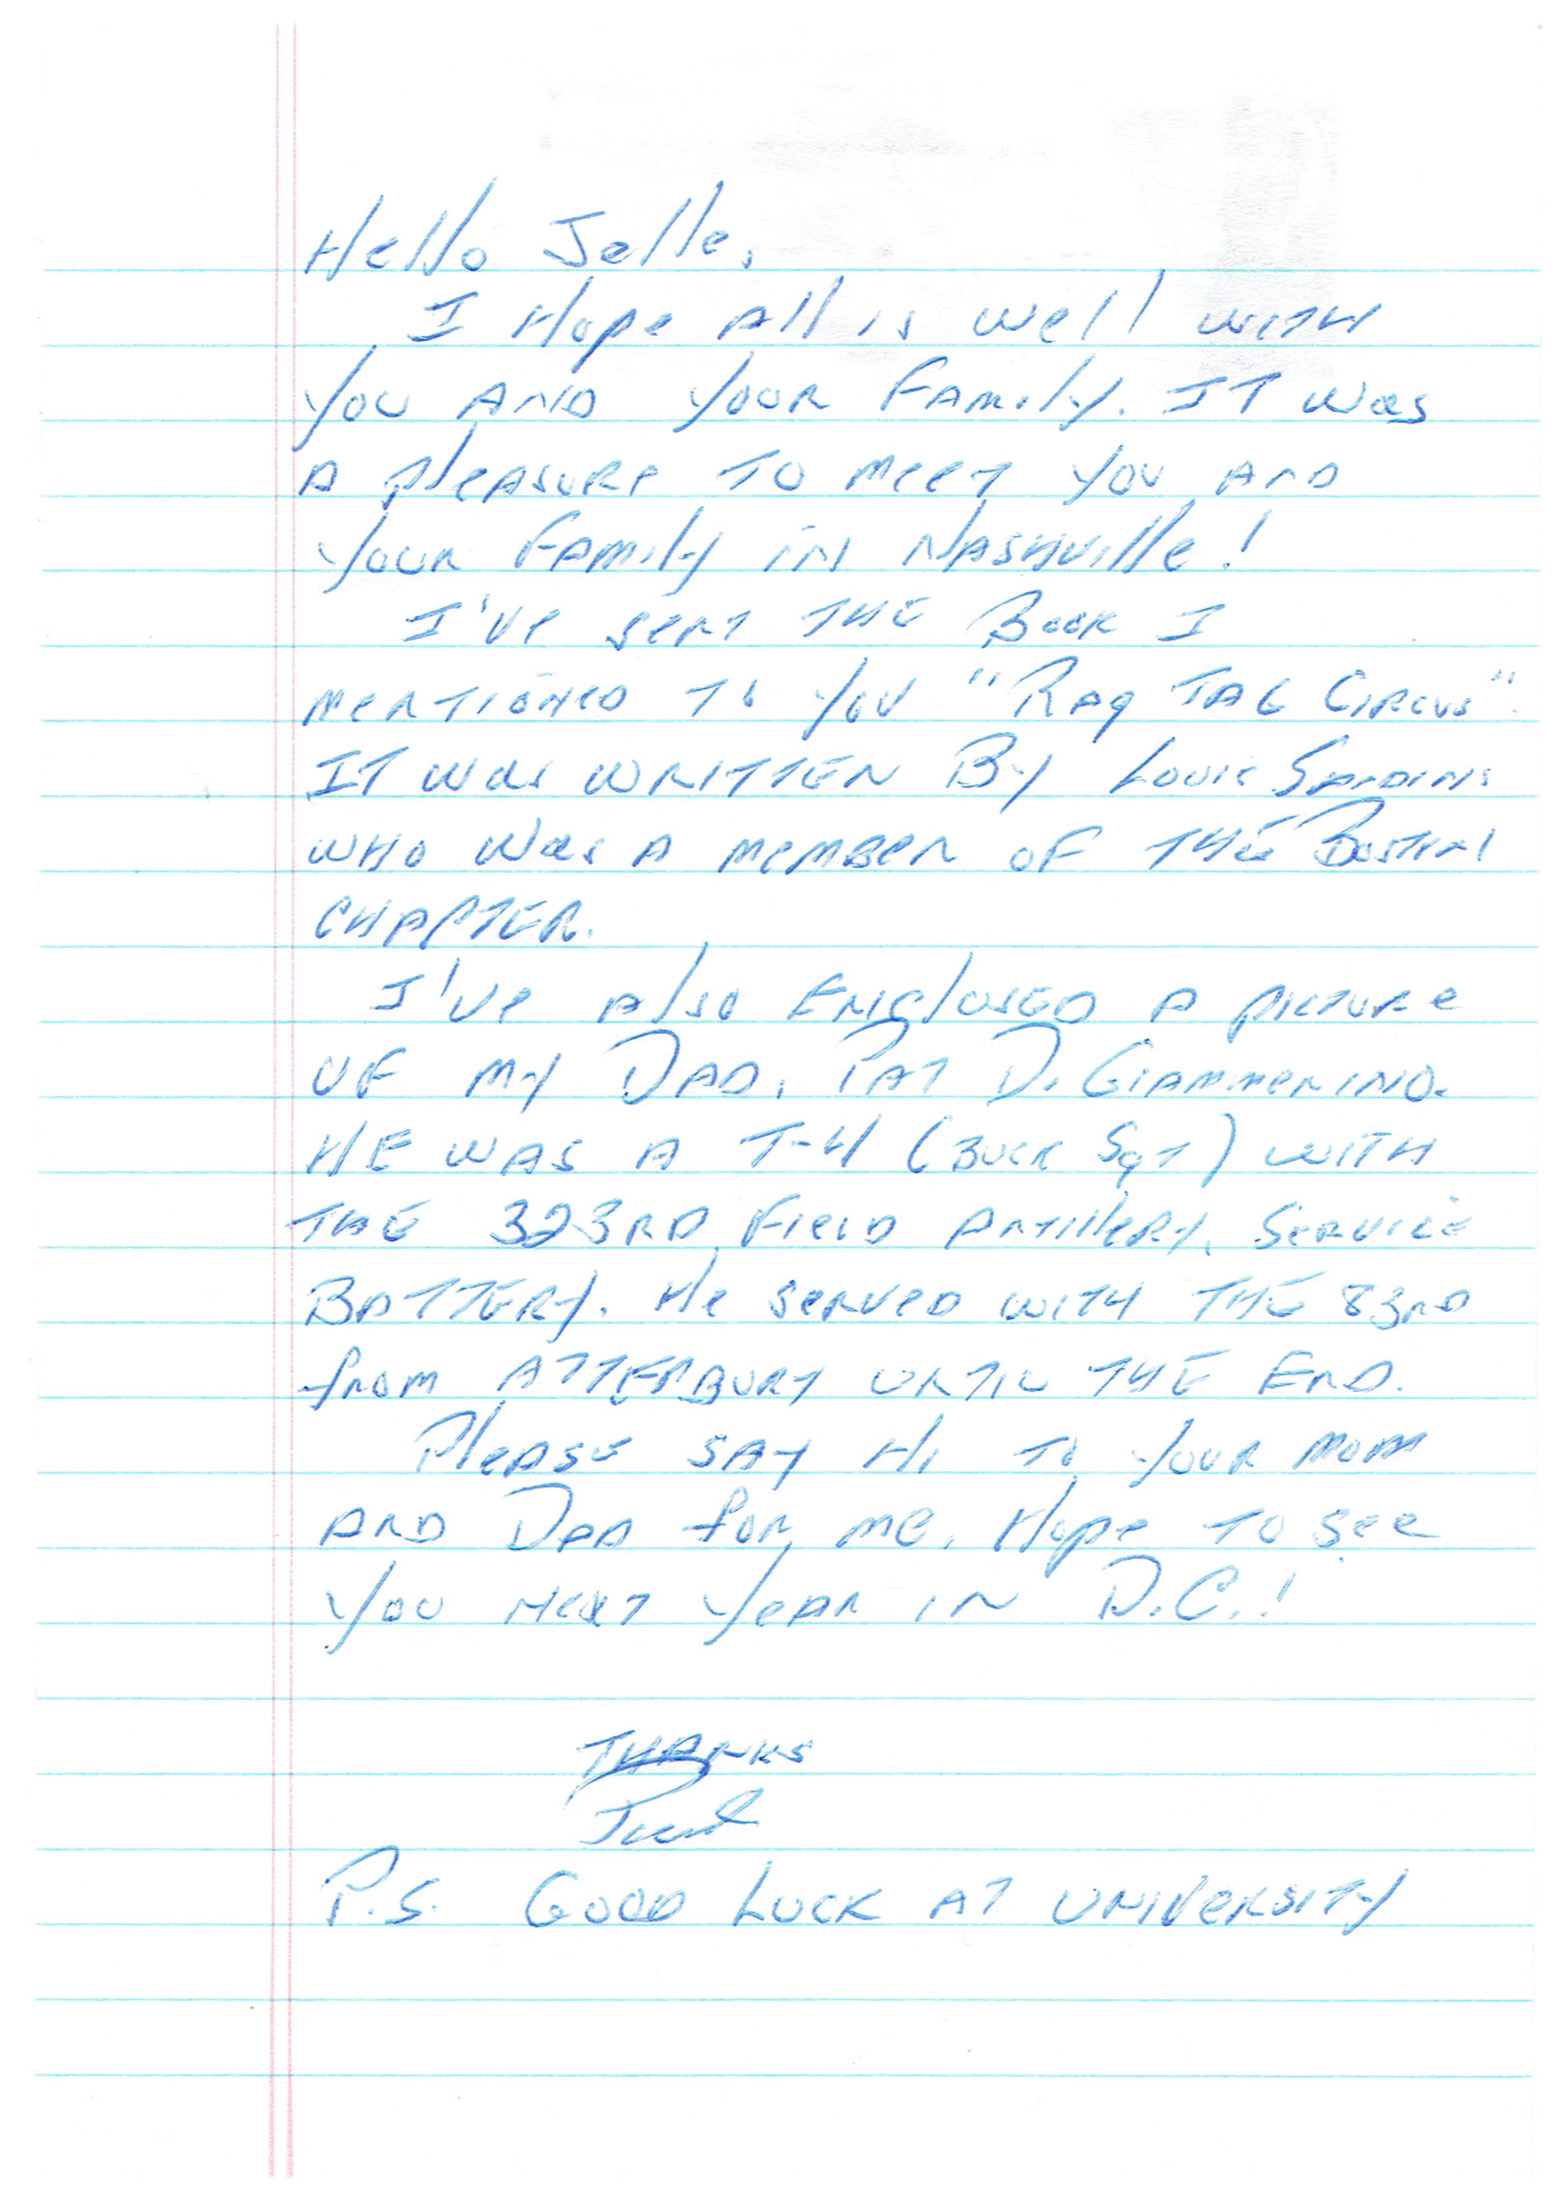 Hello Jelle,
I Hope All is well with
you AND your Family. IT was
A pleasure TO meet you AND
your Family in NASHville!
I've sent THE Book I
mentioned To you "Rag TAG Circus".
IT was WRITTEN By Louis
WHO was A member of THE Boston
CHAPTER.
I've also Enclosed A picture
OF my DAD, PAT D. GIAMMERINO.
HE WAS A T-4 (BUCK Sgt) WITH
THE 323RD Field Artillery, Service
BATTERY. He served with THE 83rd
from ATTERBURY UNTIL THE END.
Please SAY Hi To your mom
AND DAD for me. Hope TO see
you next year IN D.C.!
THANKS
P.S. GOOD LUCK AT UNIVERSITY